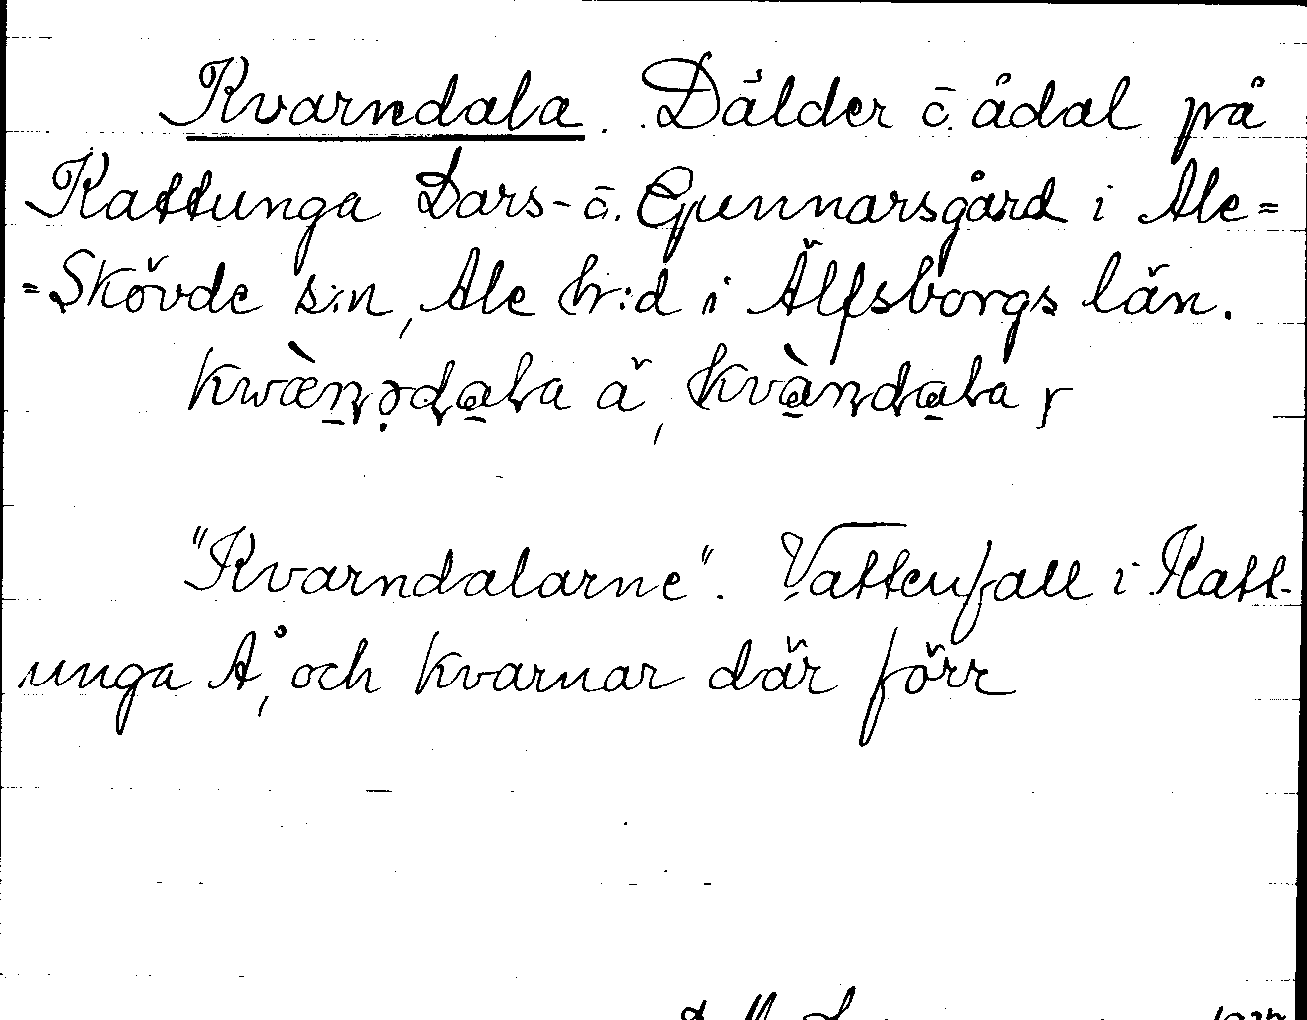 Kvarndala. Dälder o. ådal på
Kattunga Lars- o. Gunnarsgård i Ale=
=Skövde s:n, Ale hr:d i Älfsborgs län.
kwæ̀nədala ä, kvàndala r
"Kvarndalarne". Vattenfall i Katt-
unga Å, och kvarnar där förr